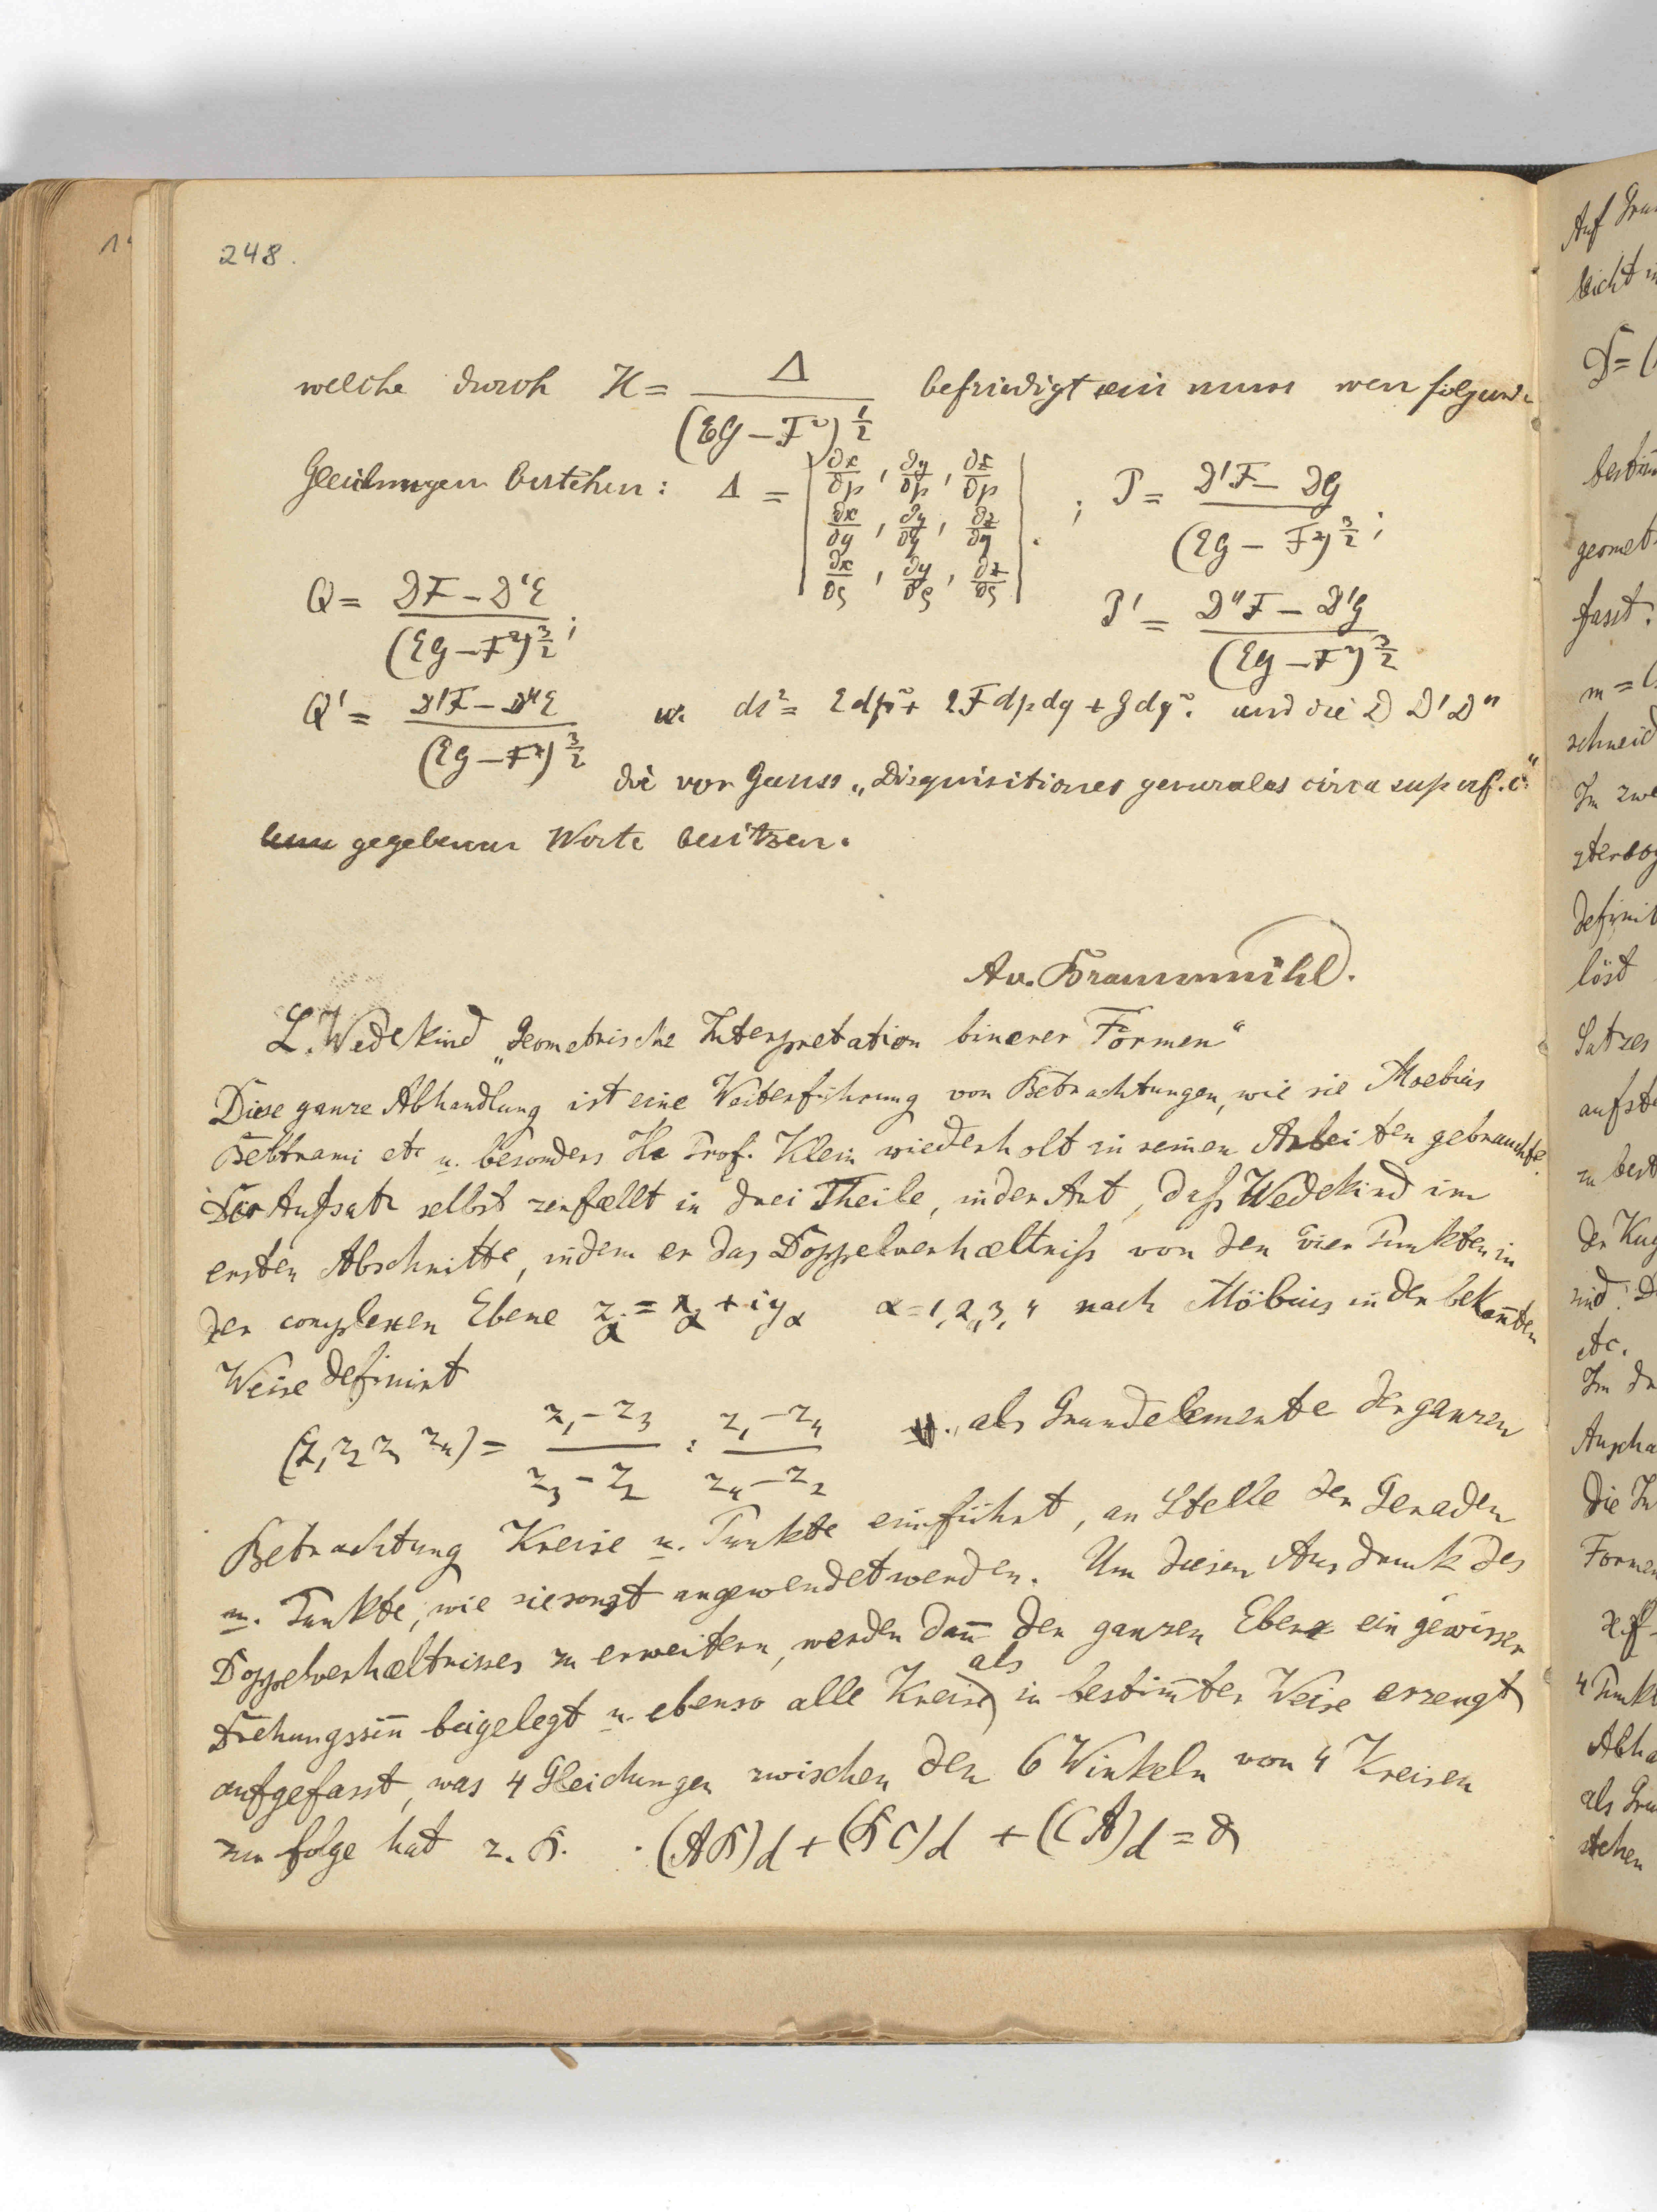 248.
welche durch H = Δ / (EG − F²)^½ befriedigt wenn folgende
Gleichungen bestehen: Δ = | ∂x/∂p, ∂y/∂p, ∂z/∂p ; ∂x/∂q, ∂y/∂q, ∂z/∂q ; ∂x/∂ς, ∂y/∂ς, ∂z/∂ς | ; P = D'F − DG / (EG − F²)^3/2 ;
Q = DF − D'E / (EG − F²)^3/2 ; P' = D''F − D'G / (EG − F²)^3/2
Q' = D'F − D''E / (EG − F²)^3/2 u. ds² = Edp² + 2Fdpdq + Gdq². und die D D' D''
die von Gauss „Disquisitiones generales circa superf. c."
gegebenen Werte besitzen.
Av. Braunmühl.
L. Wedekind „Geometrische Interpretation binærer Formen"
Diese ganze Abhandlung ist eine Weiterführung von Betrachtungen, wie sie Moebius
Beltrami etc u. besonders He Prof. Klein wiederholt in seinen Arbeiten gebrauchte.
Der Aufsatz selbst zerfællt in drei Theile, in der Art, daß Wedekind im
ersten Abschnitte, indem er das Doppelverhæltniß von den vier Punkten in
der complexen Ebene z_α = x_α + iy_α α = 1, 2, 3, 4 nach Möbius in der bekan̄ten
Weise definirt
(z₁ z₂ z₃ z₄) = z₁ − z₃ / z₃ − z₂ : z₁ − z₄ / z₄ − z₂ u. als Grundelemente der ganzen
Betrachtung Kreise u. Punkte einführt, an Stelle der Geraden
u. Punkte, wie sie sonst angewendet werden. Um diesen Ausdruck des
Doppelverhæltnisses zu erweitern, werden dan̄ der ganzen Ebene ein gewisser
Drehungssin̄ beigelegt u. ebenso alle Kreise als in bestim̄ter Weise erzeugt
aufgefasst, was 4 Gleichungen zwischen den 6 Winkeln von 4 Kreisen
zur folge hat z. B. (AB)d + (BC)d + (CA)d =